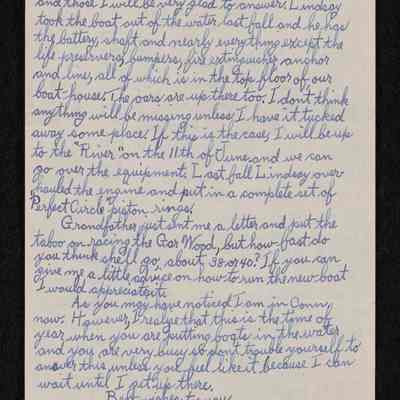 and those I will be very glad to answer. Lindsay
took the boat out of the water last fall and he has
the battery, shaft and nearly everything except the
life preservers, bumpers, fire extinguisher, anchor
and lines, all of which is in the top floor of our
boat-house. The oars are up there too. I don't think
anything will be missing unless I have it tucked
away some place. If this is the case, I will be up
to the "River" on the 11th of June and we can
go over the equipment. Last fall Lindsay over-
hauled the engine and put in a complete set of
"Perfect Circle" piston rings.
Grandfather just sent me a letter and put the
taboo on racing the Gar Wood, but how fast do
you think she'll go, about 38 or 40? If you can
give me a little advice on how to run the new boat
I would appreciate it.
As you may have noticed I am in Conn.
now. However, I realize that this is the time of
year when you are putting boats in the water
and you are very busy so don't trouble yourself to
answer this, unless you feel like it because I can
wait until I get up there.
Best wishes to you